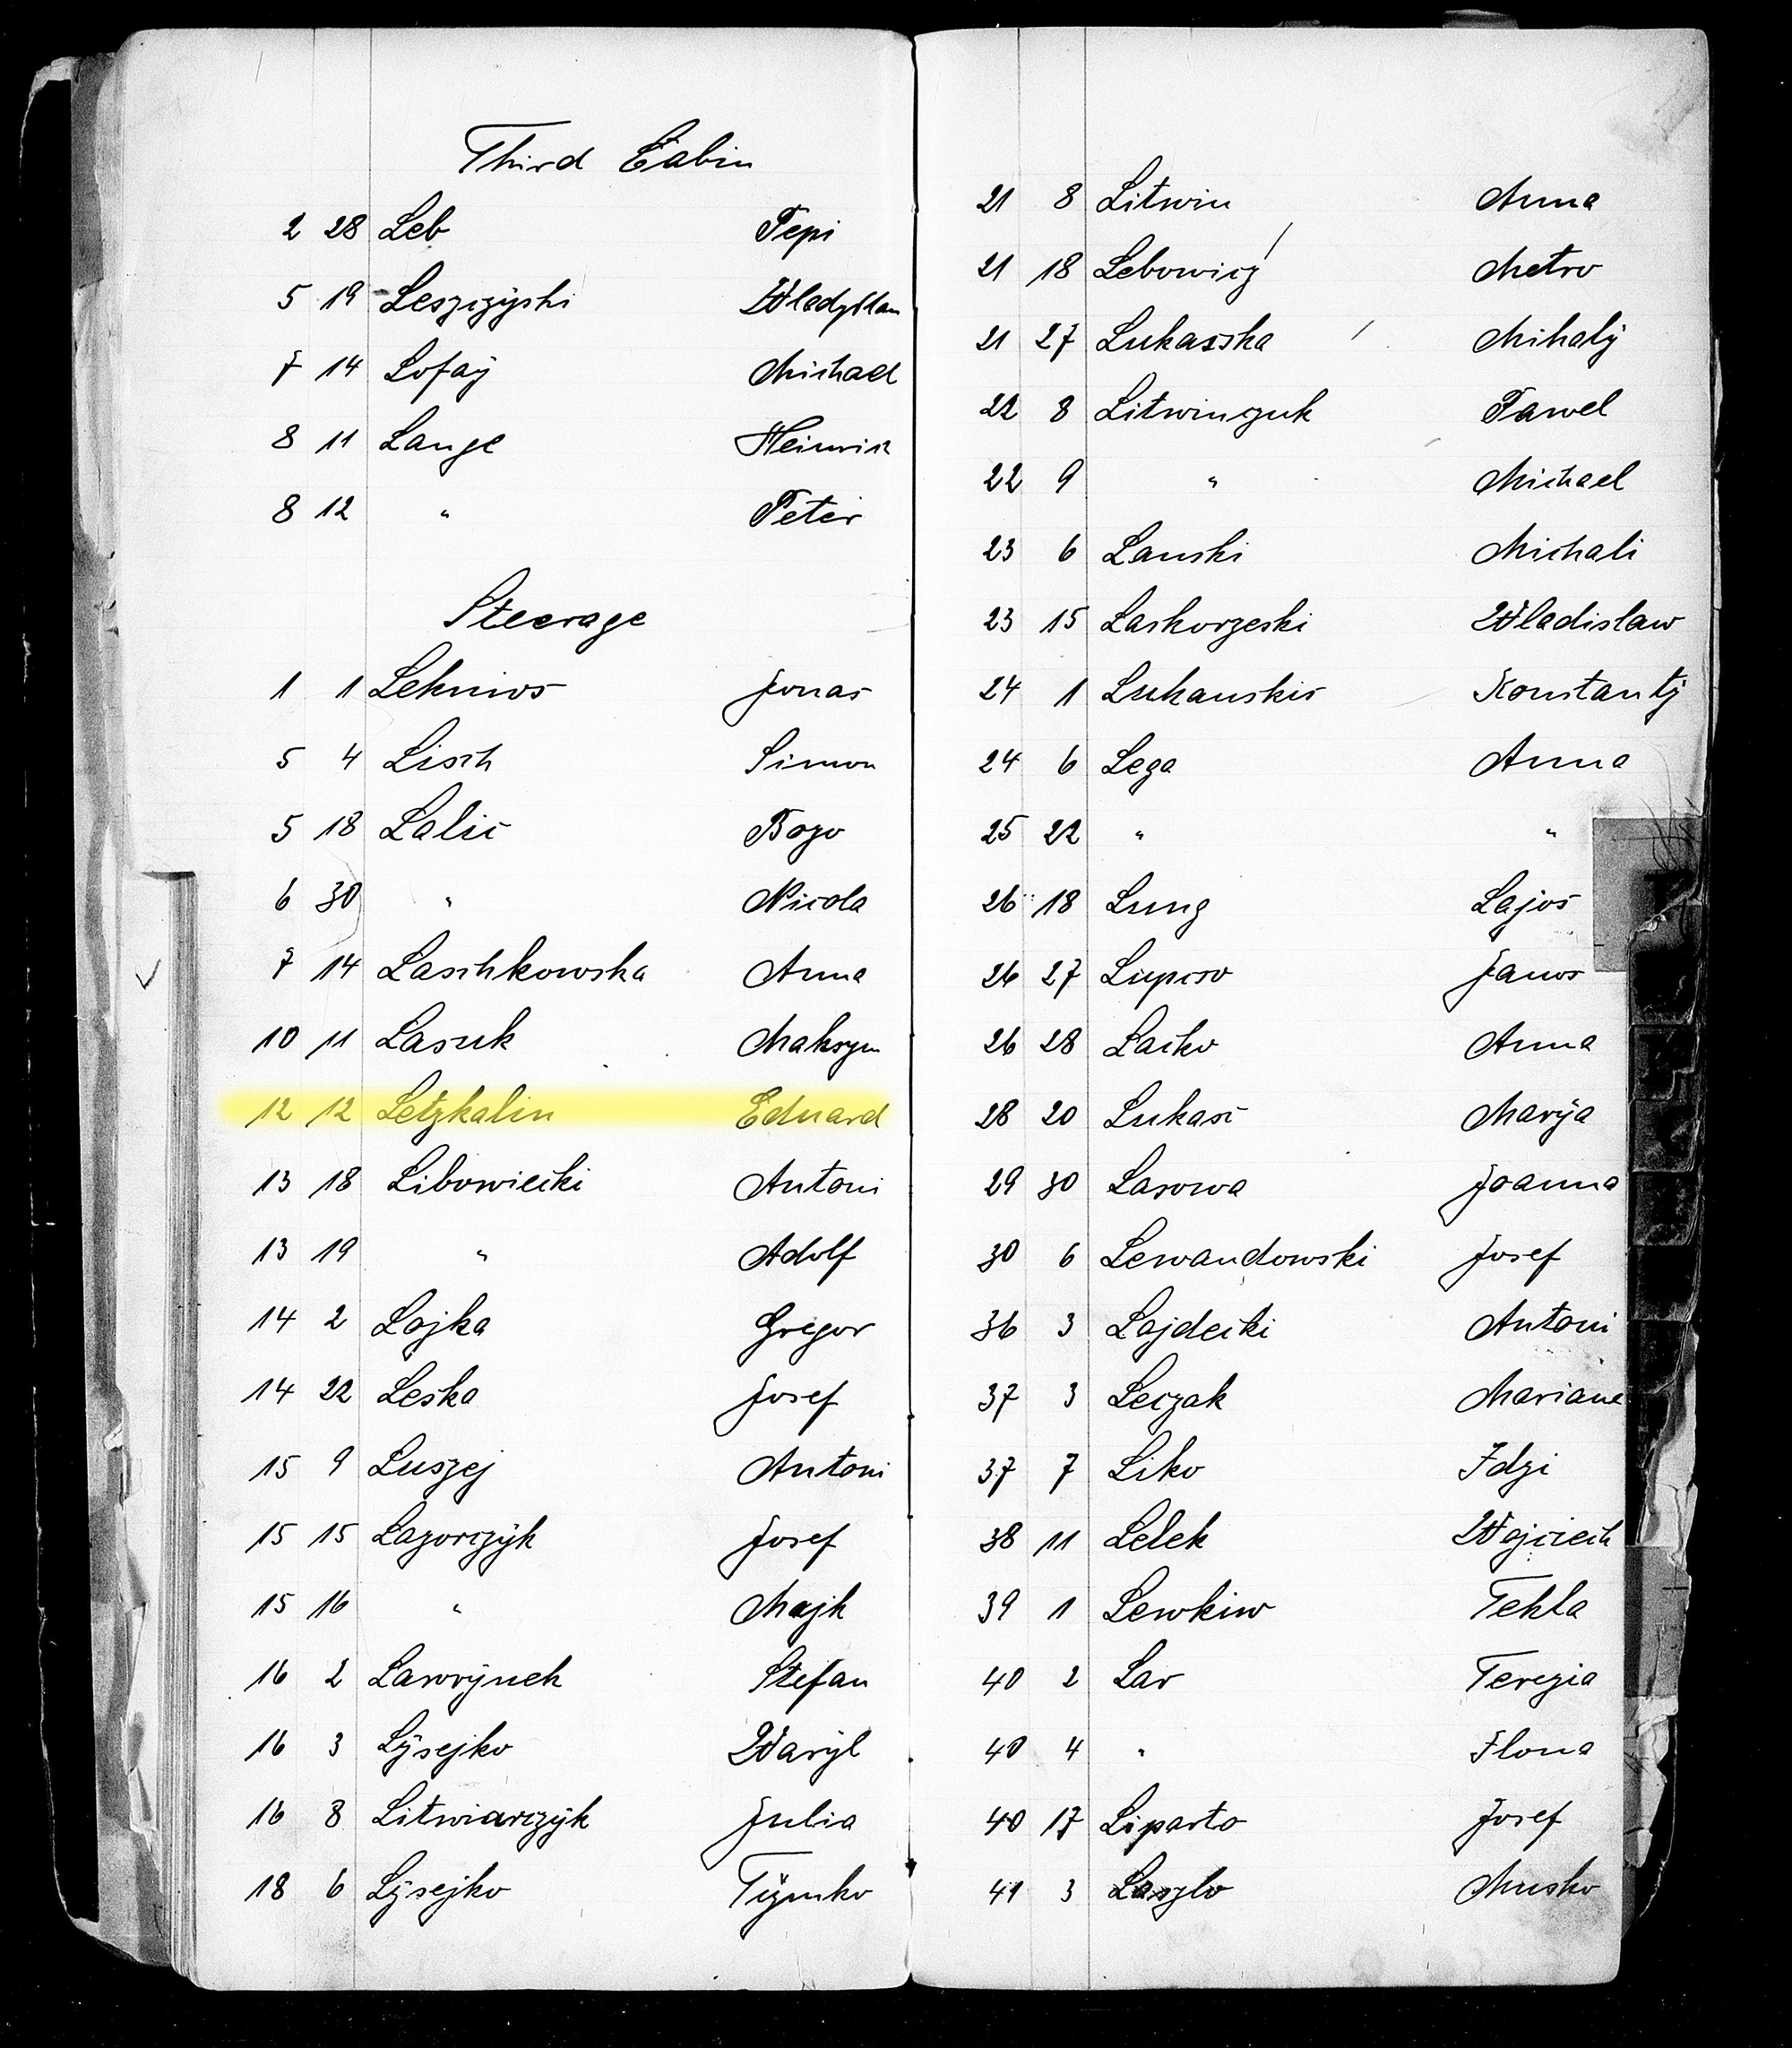 Third Cabin
2 28 Leb Pepi
5 19 Leszczÿski Wladyslaw
7 14 Lofaÿ Michael
8 11 Lange Heinrich
8 12 " Peter
Steerage
1 1 Leknios Jonas
5 4 Lisch Simon
5 18 Lalic Bozo
6 30 " Nicola
7 14 Laschkowska Anna
10 11 Lasuk Maksym
12 12 Letzkalin Eduard
13 18 Libowiecki Antoni
13 19 " Adolf
14 2 Lojka Gregor
14 22 Leska Josef
15 9 Luszej Antoni
15 15 Lazorczÿk Josef
15 16 " Majk
16 2 Lawrÿnek Stefan
16 3 Lÿsejko Wasÿl
16 8 Litwiarczÿk Julia
18 6 Lÿsejko Tÿmko
21 8 Litwin Anna
21 18 Lebowicz Metro
21 27 Lukasska Mihalÿ
22 8 Litwinczuk Pawel
22 9 " Michael
23 6 Lanski Michali
23 15 Laskorzeski Wladislaw
24 1 Lukauskis Konstantÿ
24 6 Lega Anna
25 22 " "
26 18 Lung Lajos
26 27 Lupcso Janos
26 28 Lacko Anna
28 20 Lukasc Marÿa
29 30 Lasowa Joanna
30 6 Lewandowski Josef
36 3 Lojdecki Antoni
37 3 Leczak Mariane
37 7 Liko Idzi
38 11 Lelek Wojciech
39 1 Lewkiw Tekla
40 2 Lar Terezia
40 4 " Ilona
40 17 Liparto Josef
41 3 Laszlo Musko